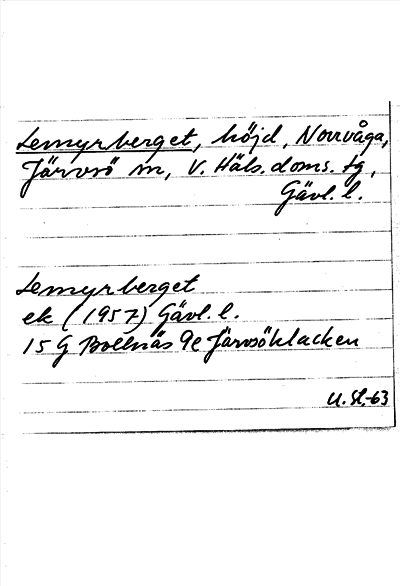 Lemyrberget, höjd, Norrvåga,
Järvsö sn, V. Häls. doms. tg,
Gävl. l.
Lemyrberget
ek (1957) Gävl. l.
15 G Bollnäs 9e Järvsöklacken
U.St.-63